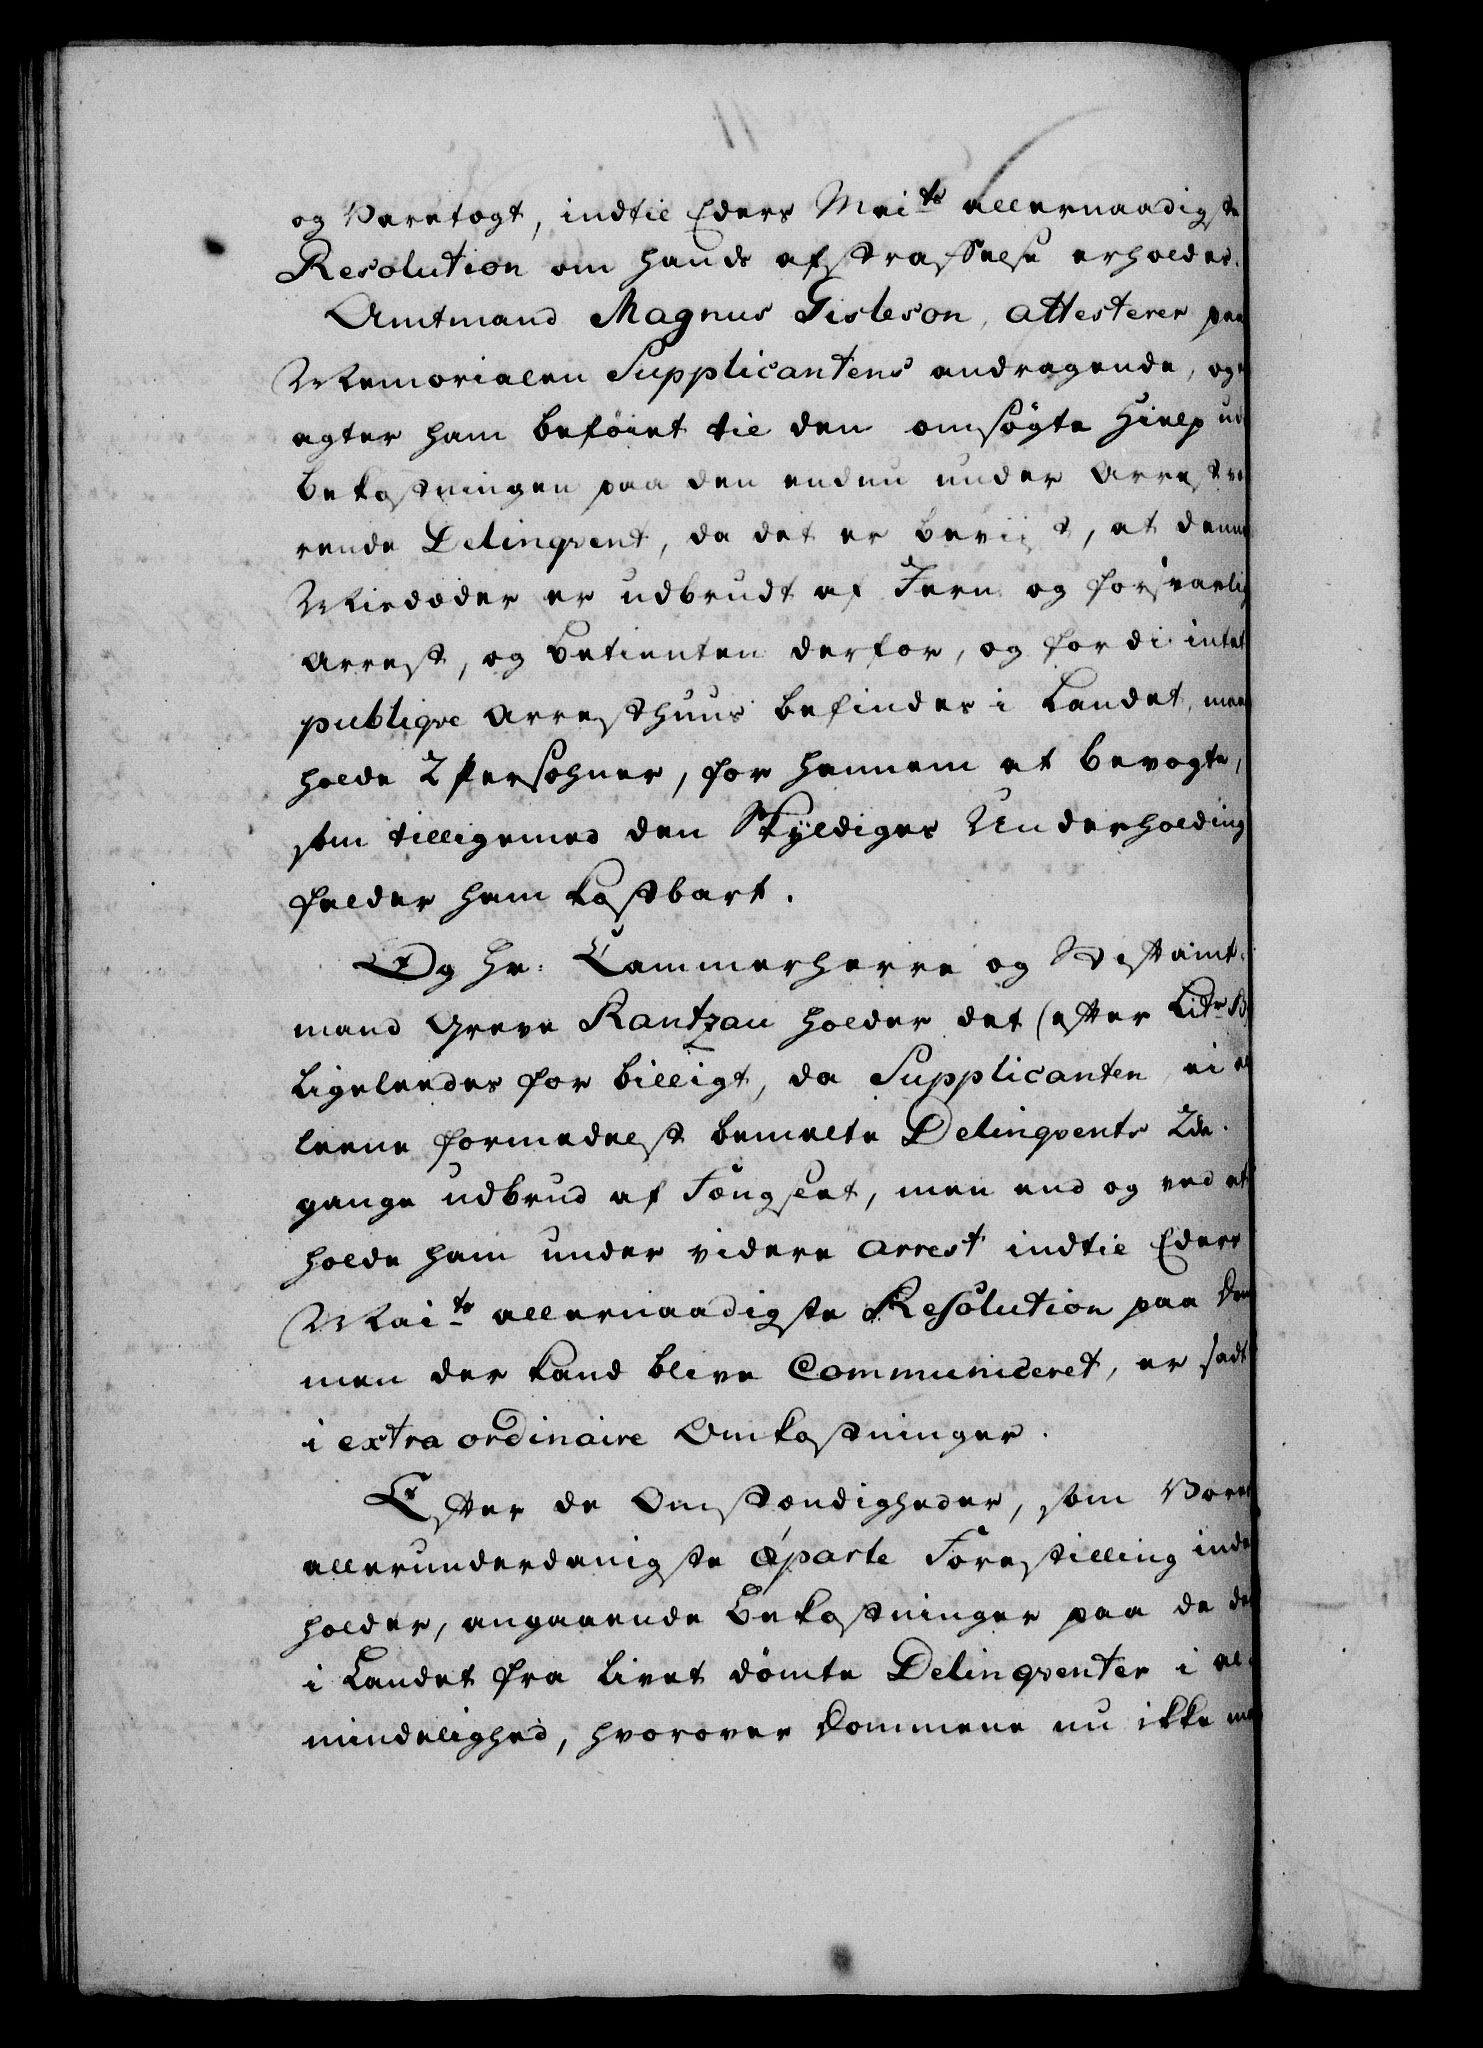 og Varetogt, indtil Eders Mai:ts allernaadigste
Resolution om hands afstraffelse erholdes.
Amtmand Magnus Gisleson, attesterer paa
Memorialen Supplicantens andragende, og
agter ham beføiet til den omsøgte Hielp ud
bekostningen paa den endnu under Arrest væ
rende Delinqvent, da det er beviist, at denne
Misdæder er udbrudt af Jern og forsvarlig
Arrest, og betienten derfor, og fordi intet
publiqve Arresthuus befindes i Landet, maae
holde 2 Persohner, for hannem at bevogte,
som tilligemed den Skyldiges Underholding
falder ham kostbart.
Og Hr: Cammerherre og Stiftamt-
mand Greve Rantzau holder det (efter Litr B)
ligeledes for billigt, da Supplicanten ei al
leene formedelst bemelte Delinqvents 2de
gange udbrud af Fængslet, men end og ved at
holde ham under videre Arrest indtil Eders
Mai:ts allernaadigste Resolution paa Dom
men der kand blive Communiceret, er sadt
i extra ordinaire Omkostninger.
Efter de Omstændigheder, som Vores
allerunderdanigste aparte Forestilling inde
holder, angaaende Bekostninger paa de der
i Landet fra livet dømte Delinqventer i al-
mindelighed, hvorover Kommene nu ikke